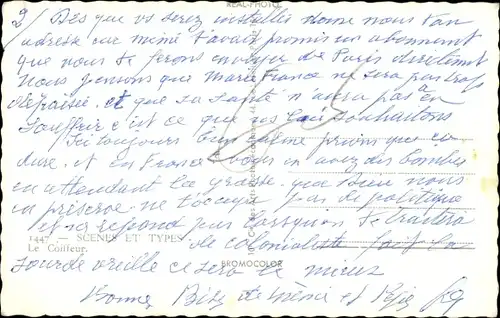 2/ Dès que vs serez installés donne nous ton
adresse car mémé t'avait promis un abonnement
que nous te ferons envoyer de Paris directement
Nous pensons que Marie France ne sera pas trop
dépaisie et que sa santé n'aura pas à en
souffrir c'est ce que ns lui souhaitons
Ici toujours le même prions que ça
dure et en France vous en avez des bombes
en attendant la grosse que Dieu nous
en préserve ne t'occupe pas de politique
et ne répond pas lorsqu'on te traitera
de colonialiste fait la
sourde oreille ce sera le mieux
Bonnes Bises de Mémé et Pépé
REAL-PHOTO
1447 — SCENES ET TYPES
Le Coiffeur
BROMOCOLOR